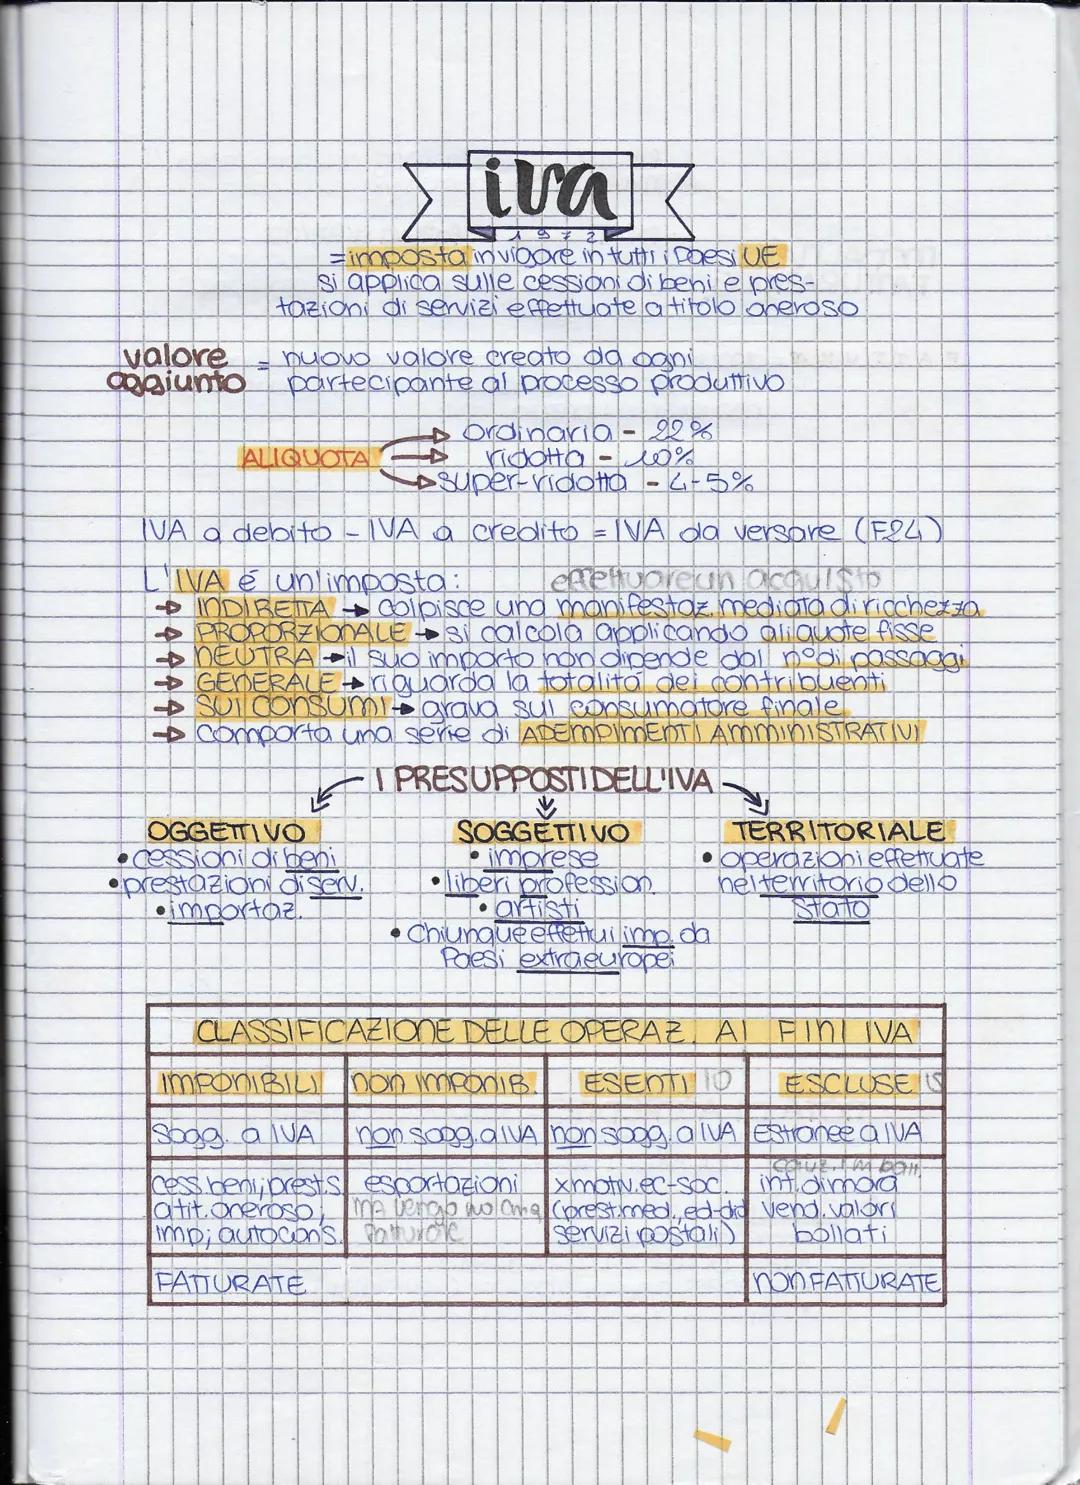 iva
1972
= imposta in vigore in tutti i Paesi UE
si applica sulle cessioni di beni e pres-
tazioni di servizi effettuate a titolo oneroso
valore aggiunto = nuovo valore creato da ogni
partecipante al processo produttivo
ALIQUOTA
ordinaria - 22%
ridotta - 10%
super-ridotta - 4-5%
IVA a debito - IVA a credito = IVA da versare (F24)
L'IVA é un'imposta:
effettuare un acquisto
→ INDIRETTA → colpisce una manifestaz. mediata di ricchezza
→ PROPORZIONALE → si calcola applicando aliquote fisse
→ NEUTRA → il suo importo non dipende dal n° di passaggi
→ GENERALE → riguarda la totalità dei contribuenti
→ SUI CONSUMI → grava sul consumatore finale
→ comporta una serie di ADEMPIMENTI AMMINISTRATIVI
I PRESUPPOSTI DELL'IVA
OGGETTIVO
• cessioni di beni
• prestazioni di serv.
• importaz.
SOGGETTIVO
• imprese
• liberi profession.
• artisti
• Chiunque effettui imp. da
Paesi extraeuropei
TERRITORIALE
• operazioni effettuate
nel territorio dello
Stato
CLASSIFICAZIONE DELLE OPERAZ. AI FINI IVA
IMPONIBILI NON IMPONIB. ESENTI 10 ESCLUSE 15
Sogg. a IVA non sogg. a IVA non sogg. a IVA Estranee a IVA
cess. beni; prest.s
a tit. oneroso;
imp; autocons.
esportazioni
ma vengono
fatturate
x motiv. ec-soc.
(prest. med., ed-did
servizi postali)
int. di mora
vend. valori
bollati
FATTURATE NON FATTURATE